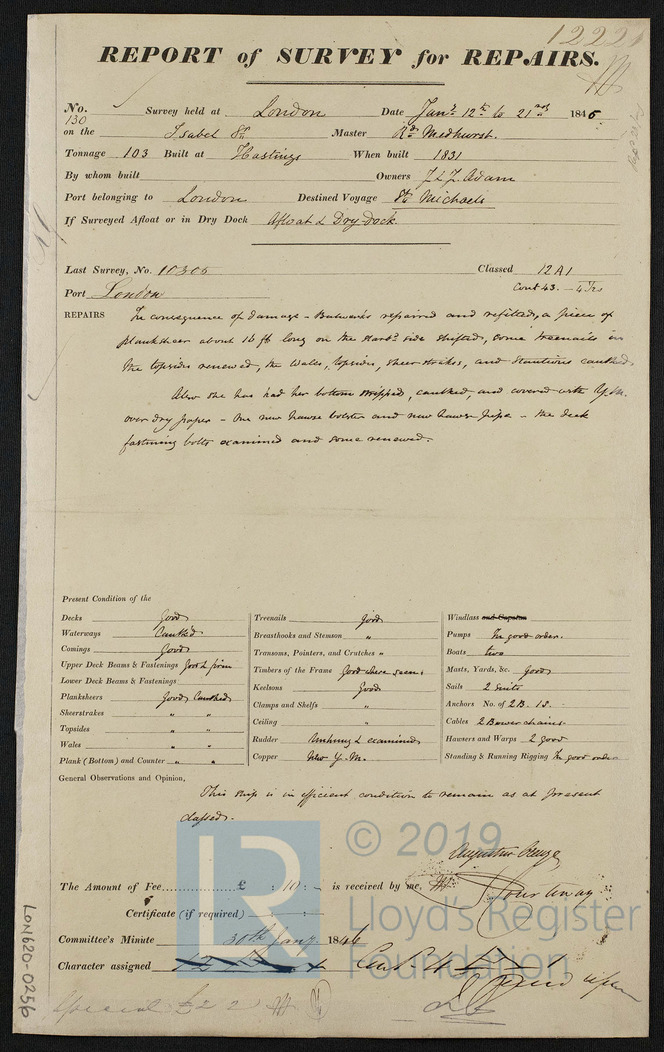 12221
REPORT of SURVEY for REPAIRS.
No. 130 Survey held at London Date Jany. 12th to 21st 1846
on the Isabel Sr. Master Rd. Medhurst.
Tonnage 103 Built at Hastings When built 1831
By whom built Owners J & J. Adam
Port belonging to London Destined Voyage St. Michaels
If Surveyed Afloat or in Dry Dock Afloat & Dry dock.
Last Survey, No. 10306 Classed 12 A1
Port London Cont 43. – 4 Yrs
REPAIRS In consequence of damage – Bulwarks repaired and refitted, a piece of
planksheer about 16 ft long on the starbd. side shifted, some treenails in
the topsides renewed, the Wales, topsides, sheerstrakes, and stantions caulked.
Also she has had her bottom stripped, caulked, and covered with Y.M.
over dry paper – One new hawse bolster and new hawse pipe – the deck
fastening bolts examined and some renewed.
Present Condition of the
Decks Good
Waterways Caulked
Comings Good
Upper Deck Beams & Fastenings Good & firm
Lower Deck Beams & Fastenings
Planksheers Good, Caulked
Sheerstrakes " "
Topsides " "
Wales " "
Plank (Bottom) and Counter " "
Treenails Good
Breasthooks and Stemson "
Transoms, Pointers, and Crutches "
Timbers of the Frame Good where seen
Keelsons Good
Clamps and Shelfs "
Ceiling "
Rudder Unhung & examined
Copper New Y.M.
Windlass and Capstan
Pumps In good order.
Boats two
Masts, Yards, &c. Good
Sails 2 Suits
Anchors No. of 2 B. 1 S.
Cables 2 Bower chains.
Hawsers and Warps 2 good
Standing & Running Rigging In good order
General Observations and Opinion,
This ship is in efficient condition to remain as at present
classed.
The Amount of Fee............... £ : 10 : – is received by me,
Certificate (if required)
Committee's Minute 30th Jany. 1846
Character assigned
Special £2 2
LON620-0256
LR
© 2019
Lloyd's Register
Foundation